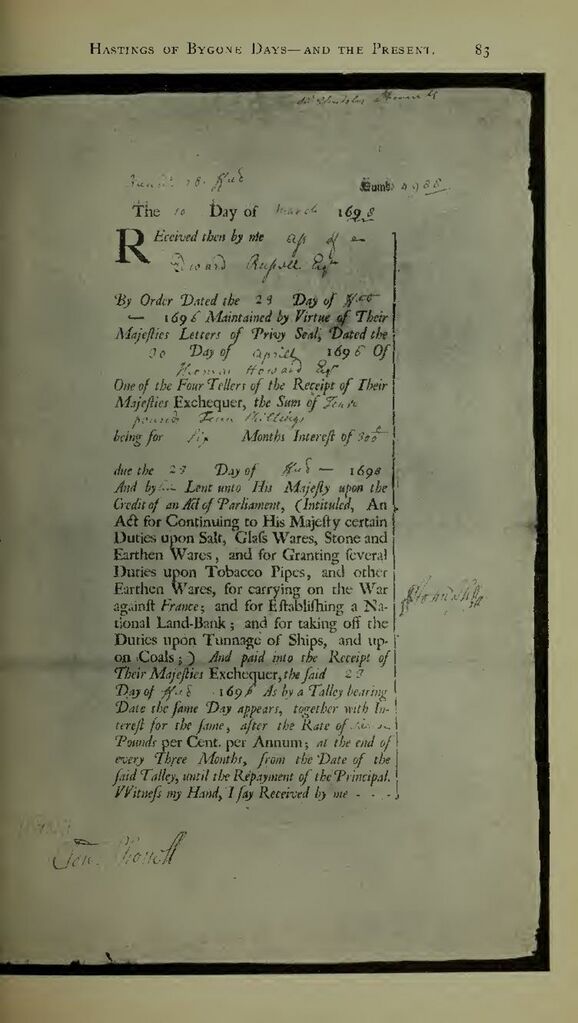 HASTINGS OF BYGONE DAYS—AND THE PRESENT. 83
Numb. 4988
The 10 Day of March 1698
REceived then by me
Russell Esqr
By Order Dated the 23 Day of
— 1696 Maintained by Virtue of Their
Majesties Letters of Privy Seal, Dated the
30 Day of Aprill 1696 Of
Thomas Howard Esqr
One of the Four Tellers of the Receipt of Their
Majesties Exchequer, the Sum of
pounds Tenn Shillings
being for Six Months Interest of 300
due the 23 Day of — 1698
And by Lent unto His Majesty upon the
Credit of an Act of Parliament, (Intituled, An
Act for Continuing to His Majesty certain
Duties upon Salt, Glass Wares, Stone and
Earthen Wares, and for Granting several
Duties upon Tobacco Pipes, and other
Earthen Wares, for carrying on the War
against France; and for Establishing a Na-
tional Land-Bank; and for taking off the
Duties upon Tunnage of Ships, and up-
on Coals;) And paid into the Receipt of
Their Majesties Exchequer, the said 23
Day of 1696 As by a Talley bearing
Date the same Day appears, together with In-
terest for the same, after the Rate of
Pounds per Cent. per Annum; at the end of
every Three Months, from the Date of the
said Talley, until the Repayment of the Principal.
VVitness my Hand, I say Received by me - - -